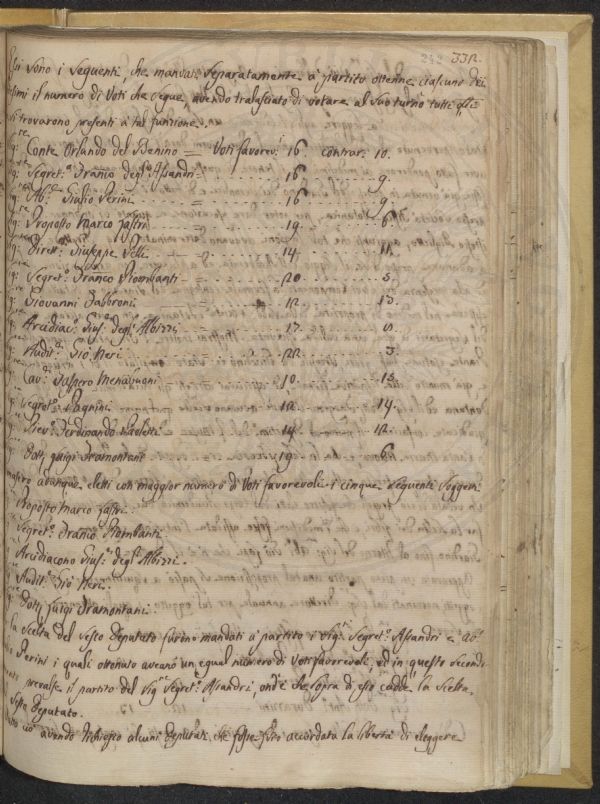 242 332.
sono i seguenti, che mandati separatamente a partito ottenne ciascuno dei
simi il numero di Voti che segue avendo tralasciato di votare al suo turno tutti
si trovarono presenti a tal funzione.
Conte Orlando del Benino = Voti favorev: 16 contrar: 10.
Segret.º Franco degl' Alessandri 16 9.
Ab.e Giulio Perini = 16 9
Proposto Marco Lastri = 19 6
Dirett.e Giuseppe Pelli = 14 11
Segret.º Franco Piombanti = 20 5
Giovanni Fabbroni = 12 13.
Arcidiac.º Gius.e degl' Albizzi = 17 8.
Audit.e Gio Neri 22 3.
Cav.e Gaspero Menabuoni 10 15
Segret.º Pagnini 12 14.
Piev.º Ferdinando Paoletti 14 12.
Dott. Luigi Tramontani 19 6
adunque eletti con maggior numero di Voti favorevoli i cinque seguenti Soggetti
Proposto Marco Lastri.
Segret.º Franco Piombanti
Arcidiacono Gius.e degl' Albizzi.
Audit.e Gio Neri.
Dott. Luigi Tramontani
la scelta del sesto Deputato furono mandati a partito i Sig.ri Segret.º Alessandri e Ab.e
Perini i quali ottenuto aveano un egual numero di Voti favorevoli, ed in questo secondo
prevalse il partito del Sig.r Segret.º Alessandri, onde che sopra di esso cadde la scelta
Sesto Deputato.
ciò avendo richiesto alcuni Deputati che fosse loro accordata la libertà di eleggere